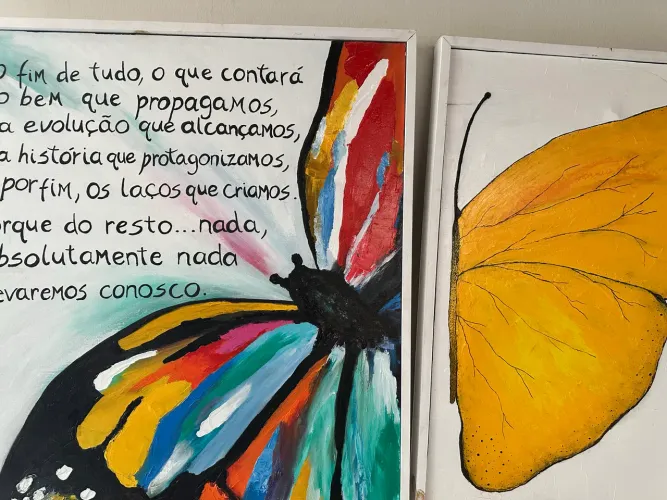 O fim de tudo, o que contará
o bem que propagamos,
a evolução que alcançamos,
a história que protagonizamos,
por fim, os laços que criamos.
orque do resto...nada,
bsolutamente nada
evaremos conosco.